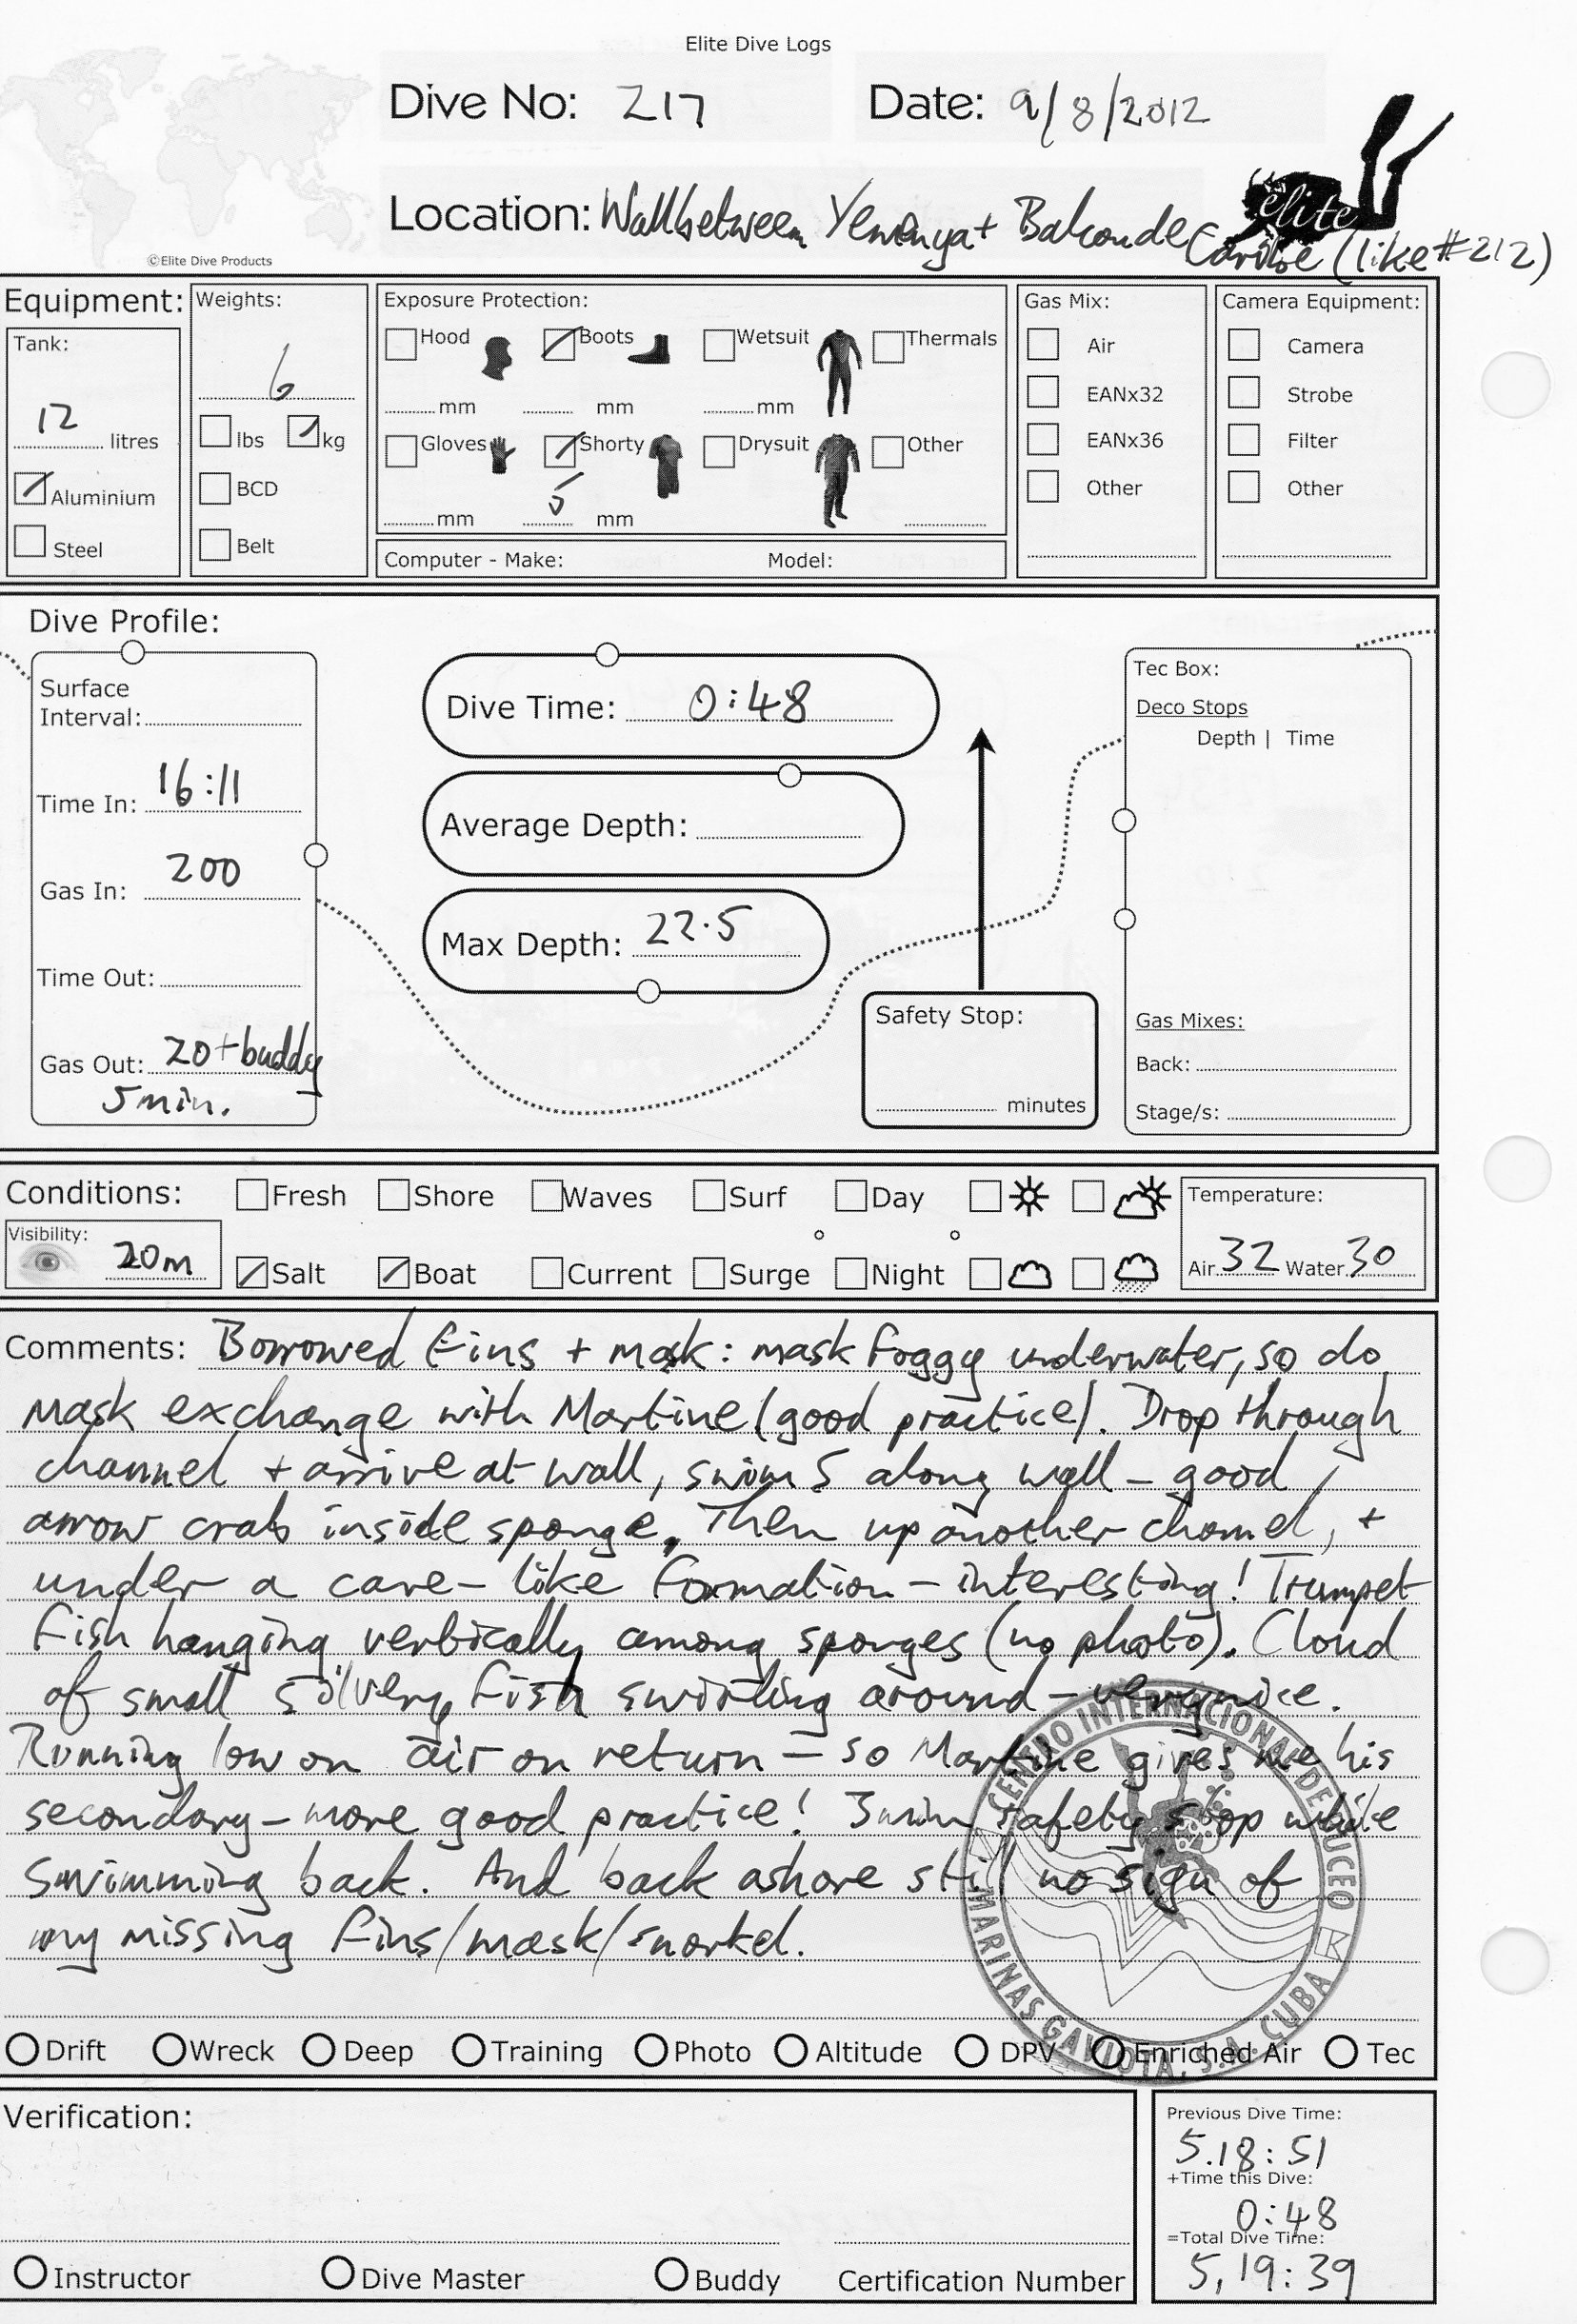 Elite Dive Logs
Dive No: 217
Date: 9/8/2012
Location: Wall between Yemenya + Balconde Caribe (like #212)
elite
©Elite Dive Products
Equipment:
Tank:
12 litres
Aluminium
Steel
Weights:
6
lbs kg
BCD
Belt
Exposure Protection:
Hood Boots Wetsuit Thermals
mm mm mm
Gloves Shorty Drysuit Other
mm 5 mm
Computer - Make: Model:
Gas Mix:
Air
EANx32
EANx36
Other
Camera Equipment:
Camera
Strobe
Filter
Other
Dive Profile:
Surface
Interval:
Time In: 16:11
Gas In: 200
Time Out:
Gas Out: 20+buddy
5min.
Dive Time: 0:48
Average Depth:
Max Depth: 22.5
Safety Stop:
minutes
Tec Box:
Deco Stops
Depth | Time
Gas Mixes:
Back:
Stage/s:
Conditions:
Fresh Shore Waves Surf Day
Visibility:
20m
Salt Boat Current Surge Night
Temperature:
Air 32 Water 30
Comments: Borrowed fins + mask: mask foggy underwater, so do
mask exchange with Martine (good practice). Drop through
channel + arrive at wall, swim S along wall - good
arrow crab inside sponge. Then up another channel, +
under a cave-like formation - interesting! Trumpet
fish hanging vertically among sponges (no photo). Cloud
of small silvery fish swirling around - very nice.
Running low on air on return - so Martine gives me his
secondary - more good practice! 3min safety stop while
swimming back. And back ashore still no sign of
my missing fins/mask/snorkel.
CENTRO INTERNACIONAL DE BUCEO
MARINAS GAVIOTA, S.A. CUBA
Drift Wreck Deep Training Photo Altitude DPV Enriched Air Tec
Verification:
Instructor Dive Master Buddy Certification Number
Previous Dive Time:
5.18:51
+Time this Dive:
0:48
=Total Dive Time:
5,19:39